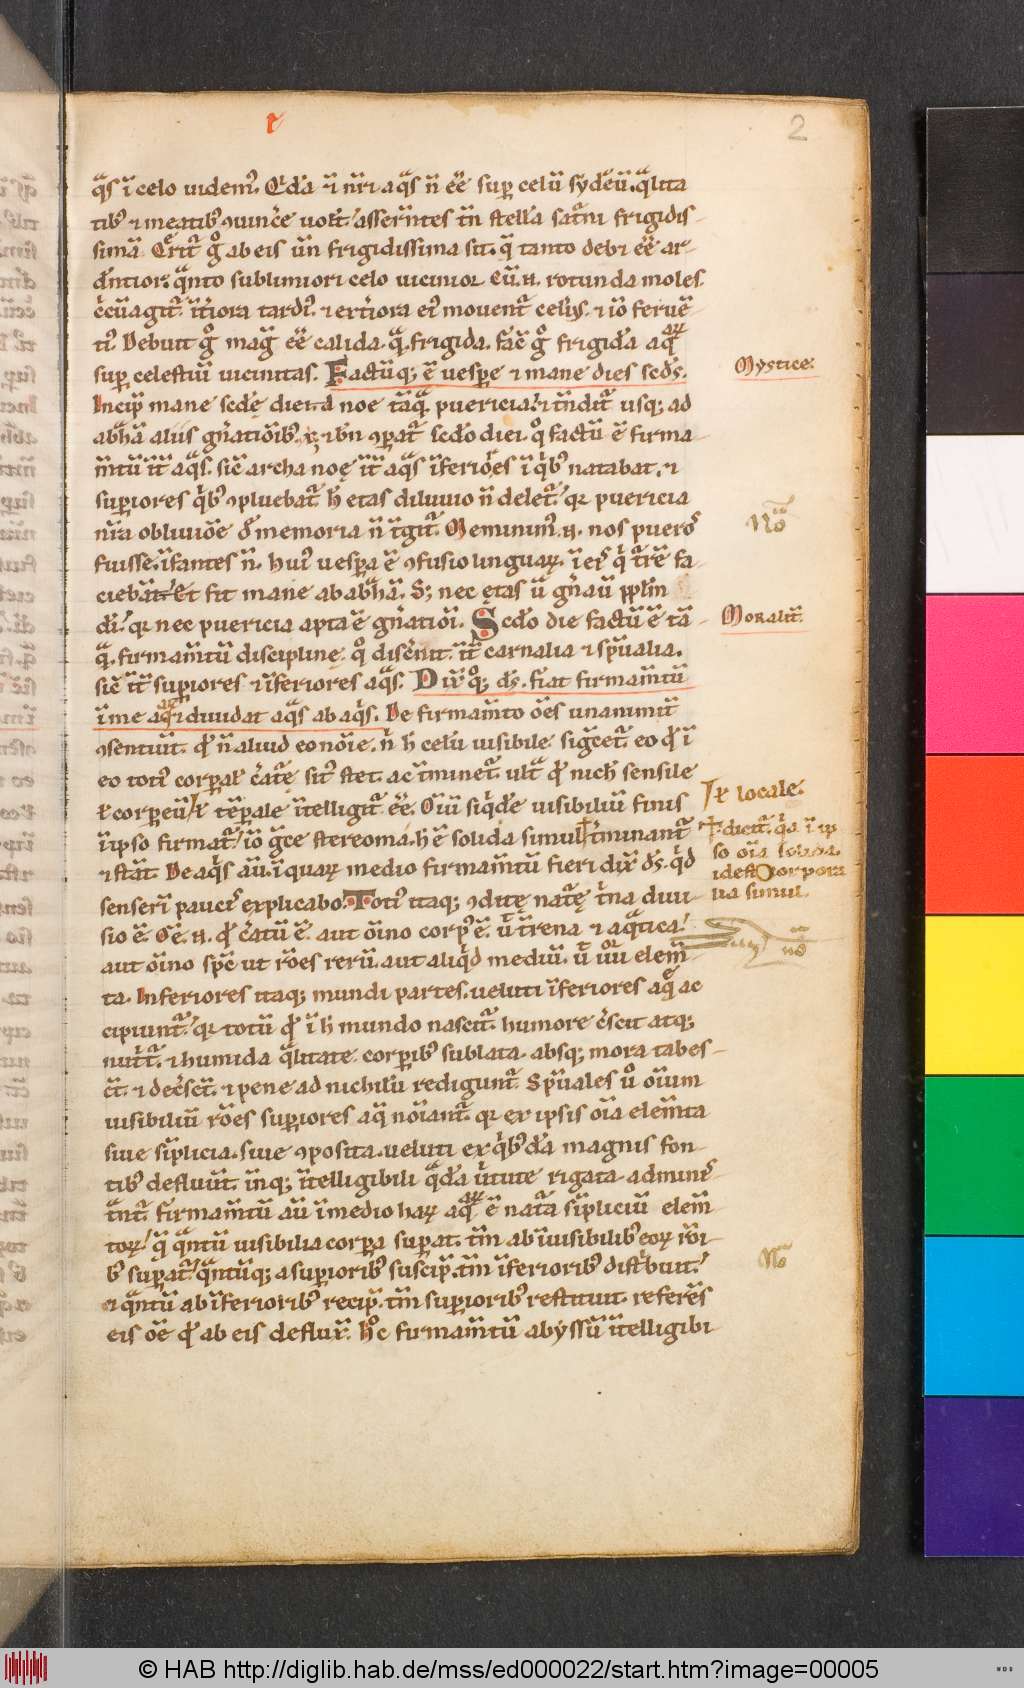 2
aq̄s ī celo uidem᷒. Qđa r̄i nr̄i aq̄s n̄ eē sup celū sydeū. q̄lita
tib᷒ ⁊ meatib᷒ ꝯuince uolt. asserentes tn̄ stellā satni frigidis-
simā. Erit᷑ g° ab eis ūn frigidissima sit. q̄ tanto deb⁊ eē ar-
dentior. q̄nto sublimiori celo uicinior. Cū .n. rotunda moles
circūagit᷑. īteriora tard᷒. ⁊ exteriora ei᷒ mouent᷑ celi᷒. ⁊ iō feruē
ti᷒. Debuit g° maḡ eē calida. q̄ frigida. facē g° frigidā aq̄ꝝ
sup celestiū uicinitas. Factūq; ē uespe ⁊ mane dies scd᷒s.
Incip mane scđe diei. a noe tāq̄ puericia. ⁊ tn̄dit᷑ usq; ad
abhā aliis gn̄atiōib᷒ ⁊ ibi ꝯparat᷑ scđo diei. q° factū ē firma-
m̄tū īt̄ aq̄s. sic̄ archa noę īt̄ aq̄s īferiōes ī q̄b᷒ natabat. ⁊
supiores q̄b᷒ ꝯpluebat᷑. h̄ etas diluuio n̄ delet᷑. qꝛ puericia
nr̄a obliuiōe đ memoria n̄ t̄git᷑. Meminim᷒ .n. nos pueros
fuisse. īfantes n̄. Hui᷒ uespa ē ꝯfusio linguaꝝ. ī eis q̄ tr̄rē fa-
ciebāt. Et fit mane ab abhā. S; nec ętas ū gn̄auit pplm
di᷒. qꝛ nec puericia apta ē gn̄atiōi. Scđo die factū ē tā-
q̄. firmam̄tū discipline. q° discernit īt̄ carnalia ⁊ spūalia.
sic̄ īt̄ supiores ⁊ īferiores aq̄s. Dixq°; ds. fiat firmam̄tū
ī me. aq̄ꝝ ⁊ diuidat aq̄s ab aq̄s. De firmam̄to ōes unanimit᷑
ꝯsentiūt. qđ n̄ aliud eo noīe. n̄ h̄ celū uisibile significet᷑. eo qđ ī
eo toti᷒ corpal᷒ creatę sit᷒ stet. ac t̄minet᷑. ult̄ qđ nich sensile
ł corpeū ł t̄pale ītelligit᷑ eē. Oīū siqđe uisibiliū finis
ī ipso firmat᷑. iō gr̄ce stereoma. h̄ ē solida simul t̄minant᷑
⁊ stāt. De aq̄s āū. ī quaꝝ medio firmam̄tū fieri dix ds. q̄d
senserīt pauc᷒ explicabo. Toti᷒ itaq; ꝯditę natę t̄na diui
sio ē. Oē .n. qđ creatū ē. aut oīno corp᷒ ē. ut t̄rena ⁊ aq̄tica.
aut oīno spc̄ ut rōes rerū. aut aliq̄d mediū. ut uoꝝ elem̄-
ta. Inferiores itaq; mundi partes. ueluti īferiores aq̄ ac
cipiunt᷑. qꝛ totū qđ ī h̄ mundo nascit᷑. humore crescit atq;
nutrit᷑. ⁊ humida q̄litate corpib᷒ sublata. absq; mora tabes-
cūt. ⁊ decrescūt. ⁊ pene ad nichilū rediguntur. Spūales ū oīum
uisibiliū rōes supiores aq̄ noīant᷑. qꝛ ex ipsis oīa elem̄ta
siue simplicia. siue ꝯposita. ueluti ex q̄b᷒dā magnis fon-
tib᷒ defluūt. īnq; ītelligibili q̄dā uirtute rigata. adminis
trant᷑. firmam̄tū āū ī medio haꝝ aq̄ꝝ ē natā simpliciū elem̄-
toꝝ. q̄ q̄ntū uisibilia corpa supat. tm̄ ab īuisibilib᷒ eoꝝ rōi-
b᷒ supat᷑. q̄ntūq; a supiorib᷒ suscip. tm̄ īferiorib᷒ distribuit.
⁊ q̄ntū ab īferiorib᷒ recip. tm̄ supiorib᷒ restituit. referēs
eis oē qđ ab eis defluxit. Hoc firmam̄tū abyssū ītelligibi
Mystice.
Noᵃ
Moralit᷑.
ł locale.
dicit᷑. q̄a ī ip
so oīa solida
idest corpora
lia simul.
nō
Noᵃ
© HAB http://diglib.hab.de/mss/ed000022/start.htm?image=00005